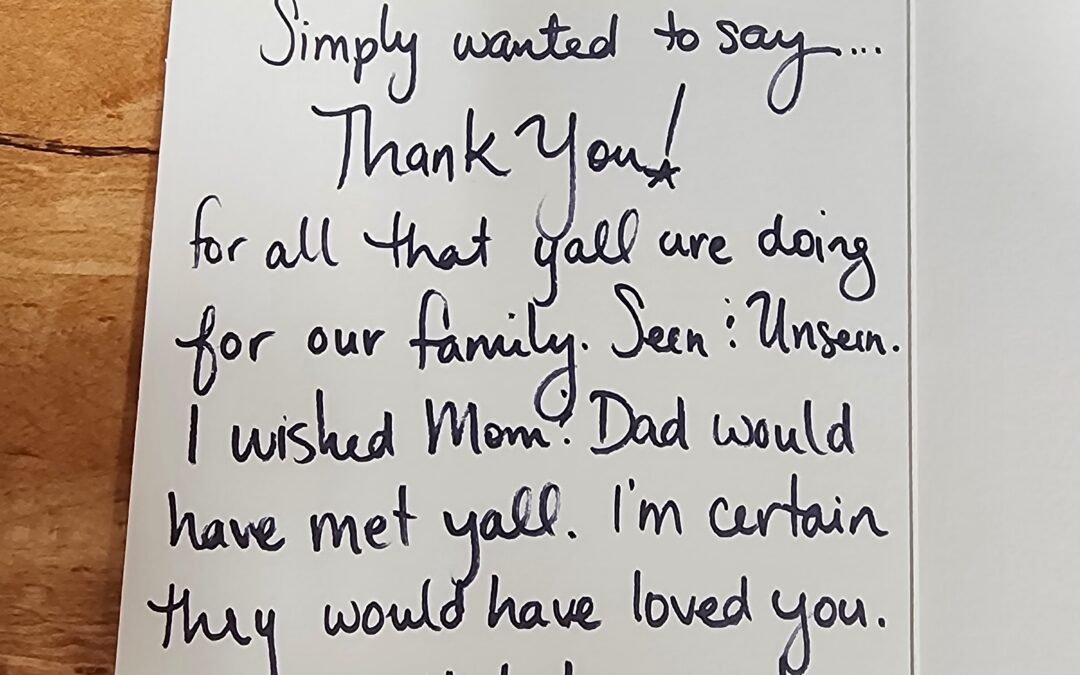 Simply wanted to say...
Thank You!
for all that yall are doing
for our family. Seen : Unseen.
I wished Mom : Dad would
have met yall. I'm certain
they would have loved you.